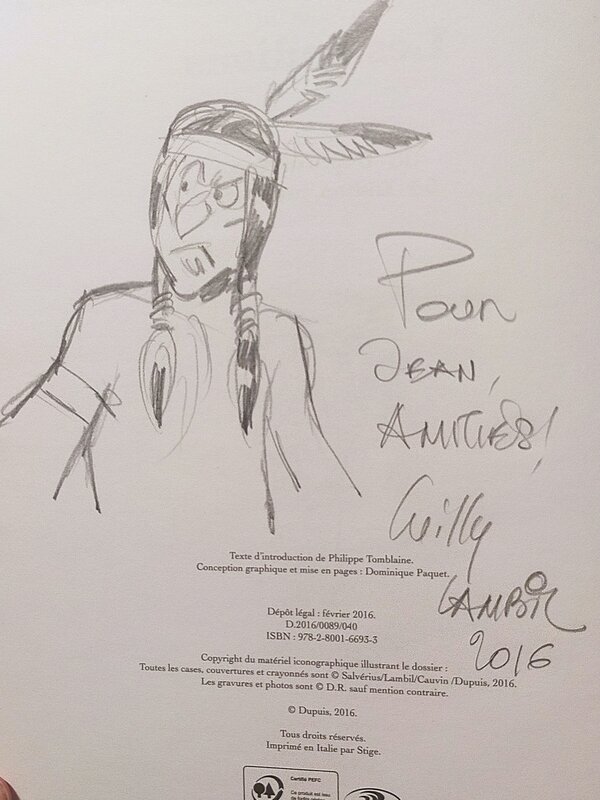 Pour
JEAN,
AMITIÉS!
Willy
LAMBIL
2016
Texte d'introduction de Philippe Tomblaine.
Conception graphique et mise en pages : Dominique Paquet.
Dépôt légal : février 2016.
D.2016/0089/040
ISBN : 978-2-8001-6693-3
Copyright du matériel iconographique illustrant le dossier :
Toutes les cases, couvertures et crayonnés sont © Salvérius/Lambil/Cauvin /Dupuis, 2016.
Les gravures et photos sont © D.R. sauf mention contraire.
© Dupuis, 2016.
Tous droits réservés.
Imprimé en Italie par Stige.
Certifié PEFC
Ce produit est issu